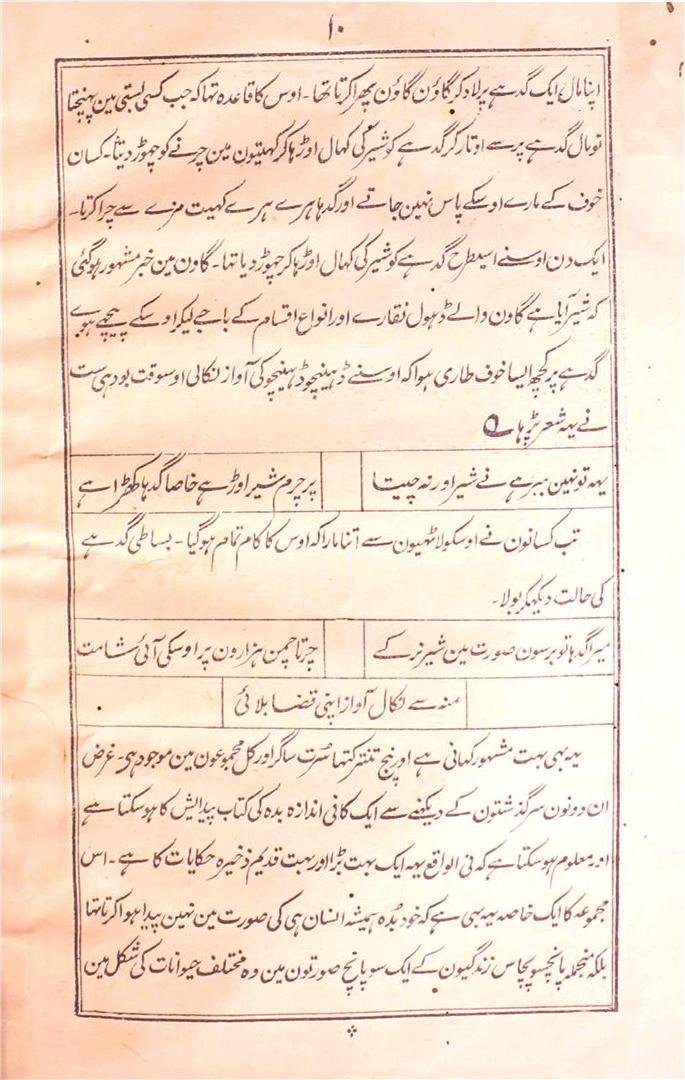 ۱۰
اپنا مال ایک گدہے پر لاد کر گاؤن گاؤن پھرا کرتا تھا۔ اوس کا قاعدہ تہا کہ جب کسی بستی مین پہنچتا
تو مال گدہے پر سے اوتار کر گدہے کو شیر کی کہال اوڑہا کر کہیتون مین چرنے کو چہوڑ دیتا۔ کسان
خوف کے مارے اوسکے پاس نہین جاتے اور گدہا ہرے ہرے کہیت مزے سے چرا کرتا۔
ایک دن اوسنے اسیطرح گدہے کو شیر کی کہال اوڑہا کر چہوڑ دیا تہا۔ گاون مین خبر مشہور ہو گئی
کہ شیر آیا ہے گاون والے ڈہول نقارے اور انواع اقسام کے باجے لیکر اوسکے پیچہے ہوے
گدہے پر کچھ ایسا خوف طاری ہوا کہ اوسنے ڈہینچو ڈہینچو کی آواز نکالی اوسوقت بودہی ست
نے یہہ شعر پڑہا ؎
یہہ تو نہین ببر ہے نے شیر اور نہ چیتا پر چرم شیر اوڑہے خاصا گدہا کھڑا ہے
تب کسانون نے اوسکو لاٹھیون سے اتنا مارا کہ اوس کا کام تمام ہو گیا۔ بساطی گدہے
کی حالت دیکہکر بولا۔
میرا گدہا تو برسون صورت مین شیر نر کے چرتا چمن ہزارون پر اوسکی آئی شامت
منہ سے نکال آواز اپنی قضا بلائی
یہ بہی بہت مشہور کہانی ہے اور پنچ تنتر کتہا سرت ساگر اور کل مجموعون مین موجود ہی۔ غرض
ان دونون سرگذشتون کے دیکہنے سے ایک کافی اندازہ بدہ کی کتاب پیدایش کا ہو سکتا ہے
اور معلوم ہو سکتا ہے کہ فی الواقع یہہ ایک بہت بڑا اور بہت قدیم ذخیرہ حکایات کا ہے۔ اس
مجموعہ کا ایک خاصہ یہہ بہی ہے کہ خود بُدہ ہمیشہ انسان ہی کی صورت مین نہین پیدا ہوا کرتا تہا
بلکہ منجملہ پانچسو پچاس زندگیون کے ایک سو پانچ صورتون مین وہ مختلف حیوانات کی شکل مین